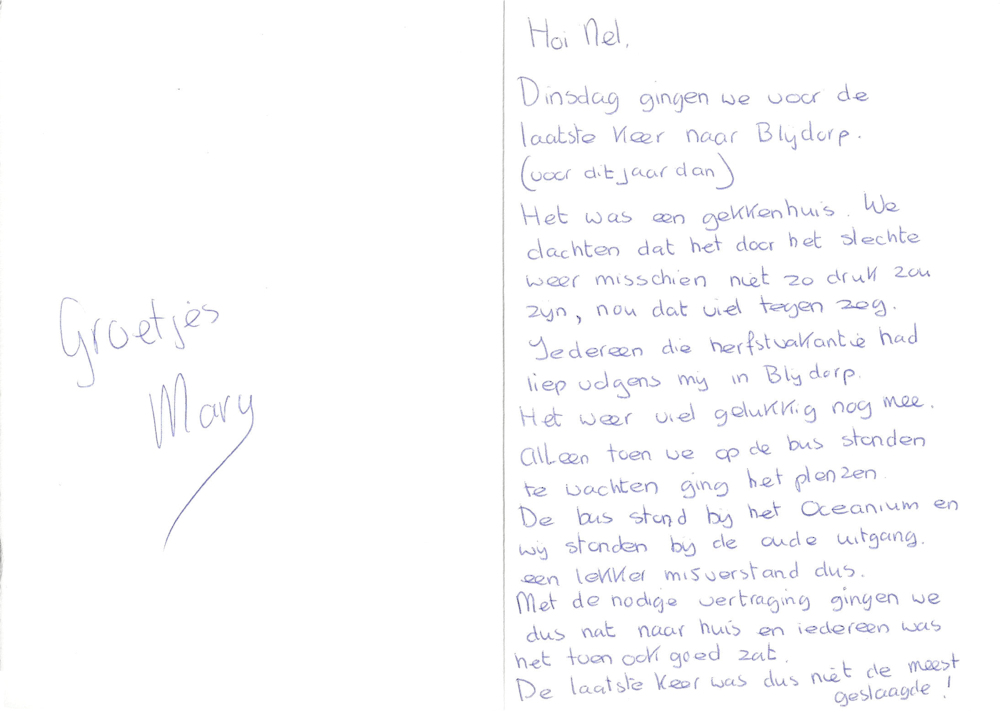 Groetjes
Mary
Hoi Nel,
Dinsdag gingen we voor de
laatste keer naar Blijdorp.
(voor dit jaar dan)
Het was een gekkenhuis. We
dachten dat het door het slechte
weer misschien niet zo druk zou
zijn, nou dat viel tegen zeg.
Iedereen die herfstvakantie had
liep volgens mij in Blijdorp.
Het weer viel gelukkig nog mee.
Alleen toen we op de bus stonden
te wachten ging het plenzen.
De bus stond bij het Oceanium en
wij stonden bij de oude uitgang.
een lekker misverstand dus.
Met de nodige vertraging gingen we
dus nat naar huis en iedereen was
het toen ook goed zat.
De laatste keer was dus niet de meest
geslaagde!